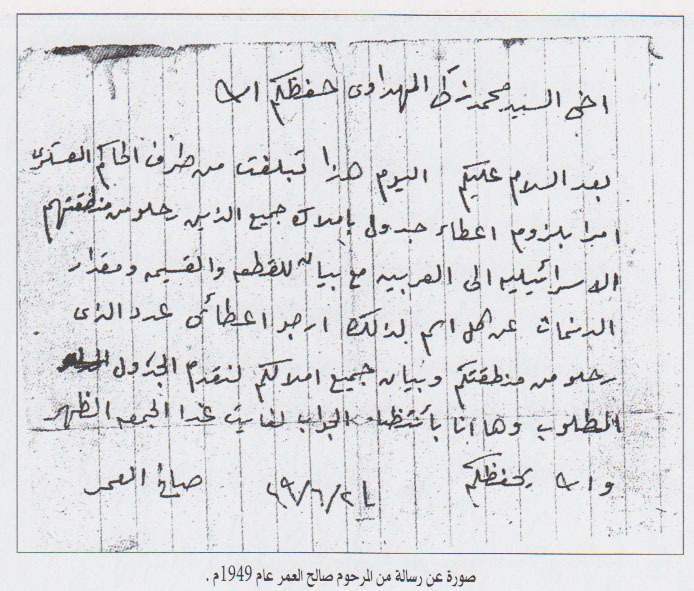 اخي السيد محمد زكي المهداوي حفظكم الله
بعد السلام عليكم اليوم هذا تبلغت من طرف الحاكم العسكري
امرا بلزوم اعطاء جدول باملاك جميع الذين رحلو من منطقتهم
الاسرائيليه الى العربيه مع بيان للقطعه والقسيمه ومقدار
الدنمات عن كل اسم لذلك ارجو اعطائي عدد الذي
رحلو من منطقتكم وبيان جميع املاككم لنقدم الجدول
المطلوب وها انا بأنتظار الجواب لغايت غدا الجمعه الظهر
والله يحفظكم
صالح العمر
صورة عن رسالة من المرحوم صالح العمر عام 1949م .